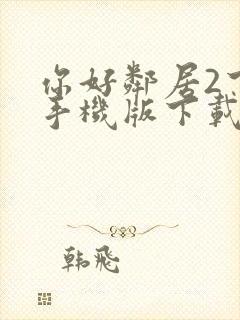 你好鄰居2
手機版下載
韩飛